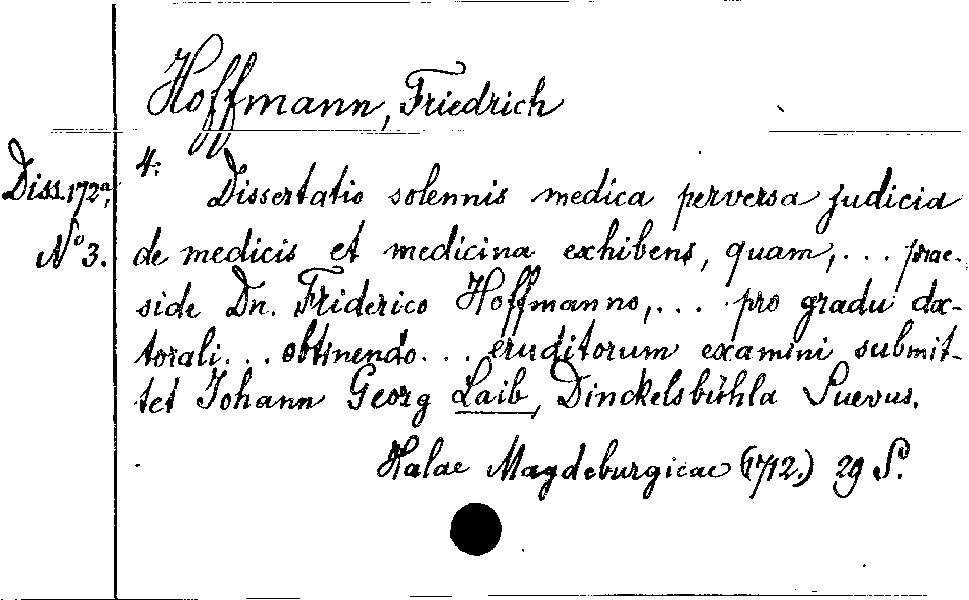 Hoffmann, Friedrich
Diss. 172a,
No 3.
4.
Dissertatio solennis medica perversa judicia
de medicis et medicina exhibens, quam, . . . prae-
side Dn. Friderico Hoffmanno, . . . pro gradu doc-
torali . . . obtinendo . . . eruditorum examini submit-
tet Johann Georg Laib, Dinckelsbühla Suevus.
Halae Magdeburgicae (1712.) 29 S.